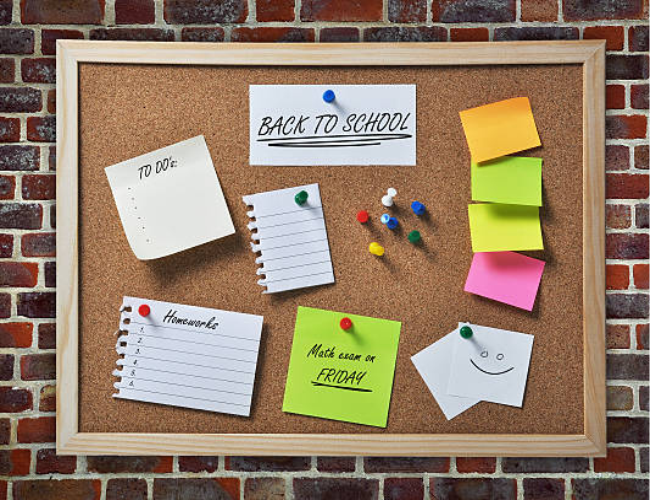 BACK TO SCHOOL
TO DO's:
Homeworks
1.
2.
3.
4.
5.
6.
Math exam on
FRIDAY